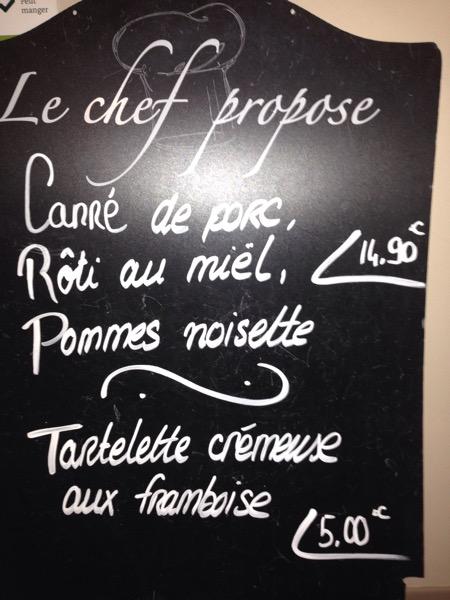 Peut
manger
Le chef propose
Carré de porc,
Rôti au miël, 14.90€
Pommes noisette
Tartelette crémeuse
aux framboise
5.00€